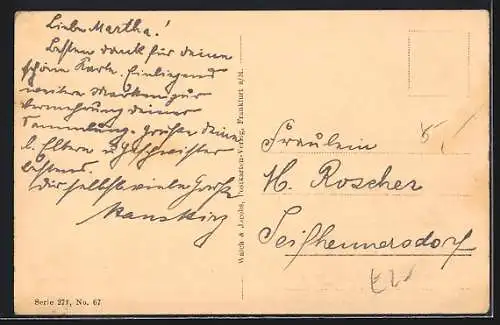 Liebe Martha!
Besten Dank für deine
schöne Karte. Einliegend
weitere Marken zur
Vermehrung deiner
Sammlung. Grüße deine
l. Eltern u. Geschwister
bestens.
Dir selbst viele Grüße
Walch & Jacobs, Postkarten-Verlag, Frankfurt a/M.
Fräulein
H. Roscher
Seifhennersdorf
Serie 271, No. 67